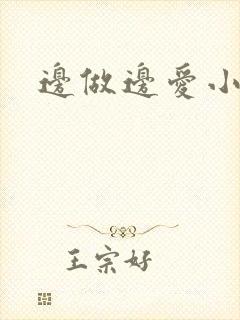 邊做邊愛小
王宗好